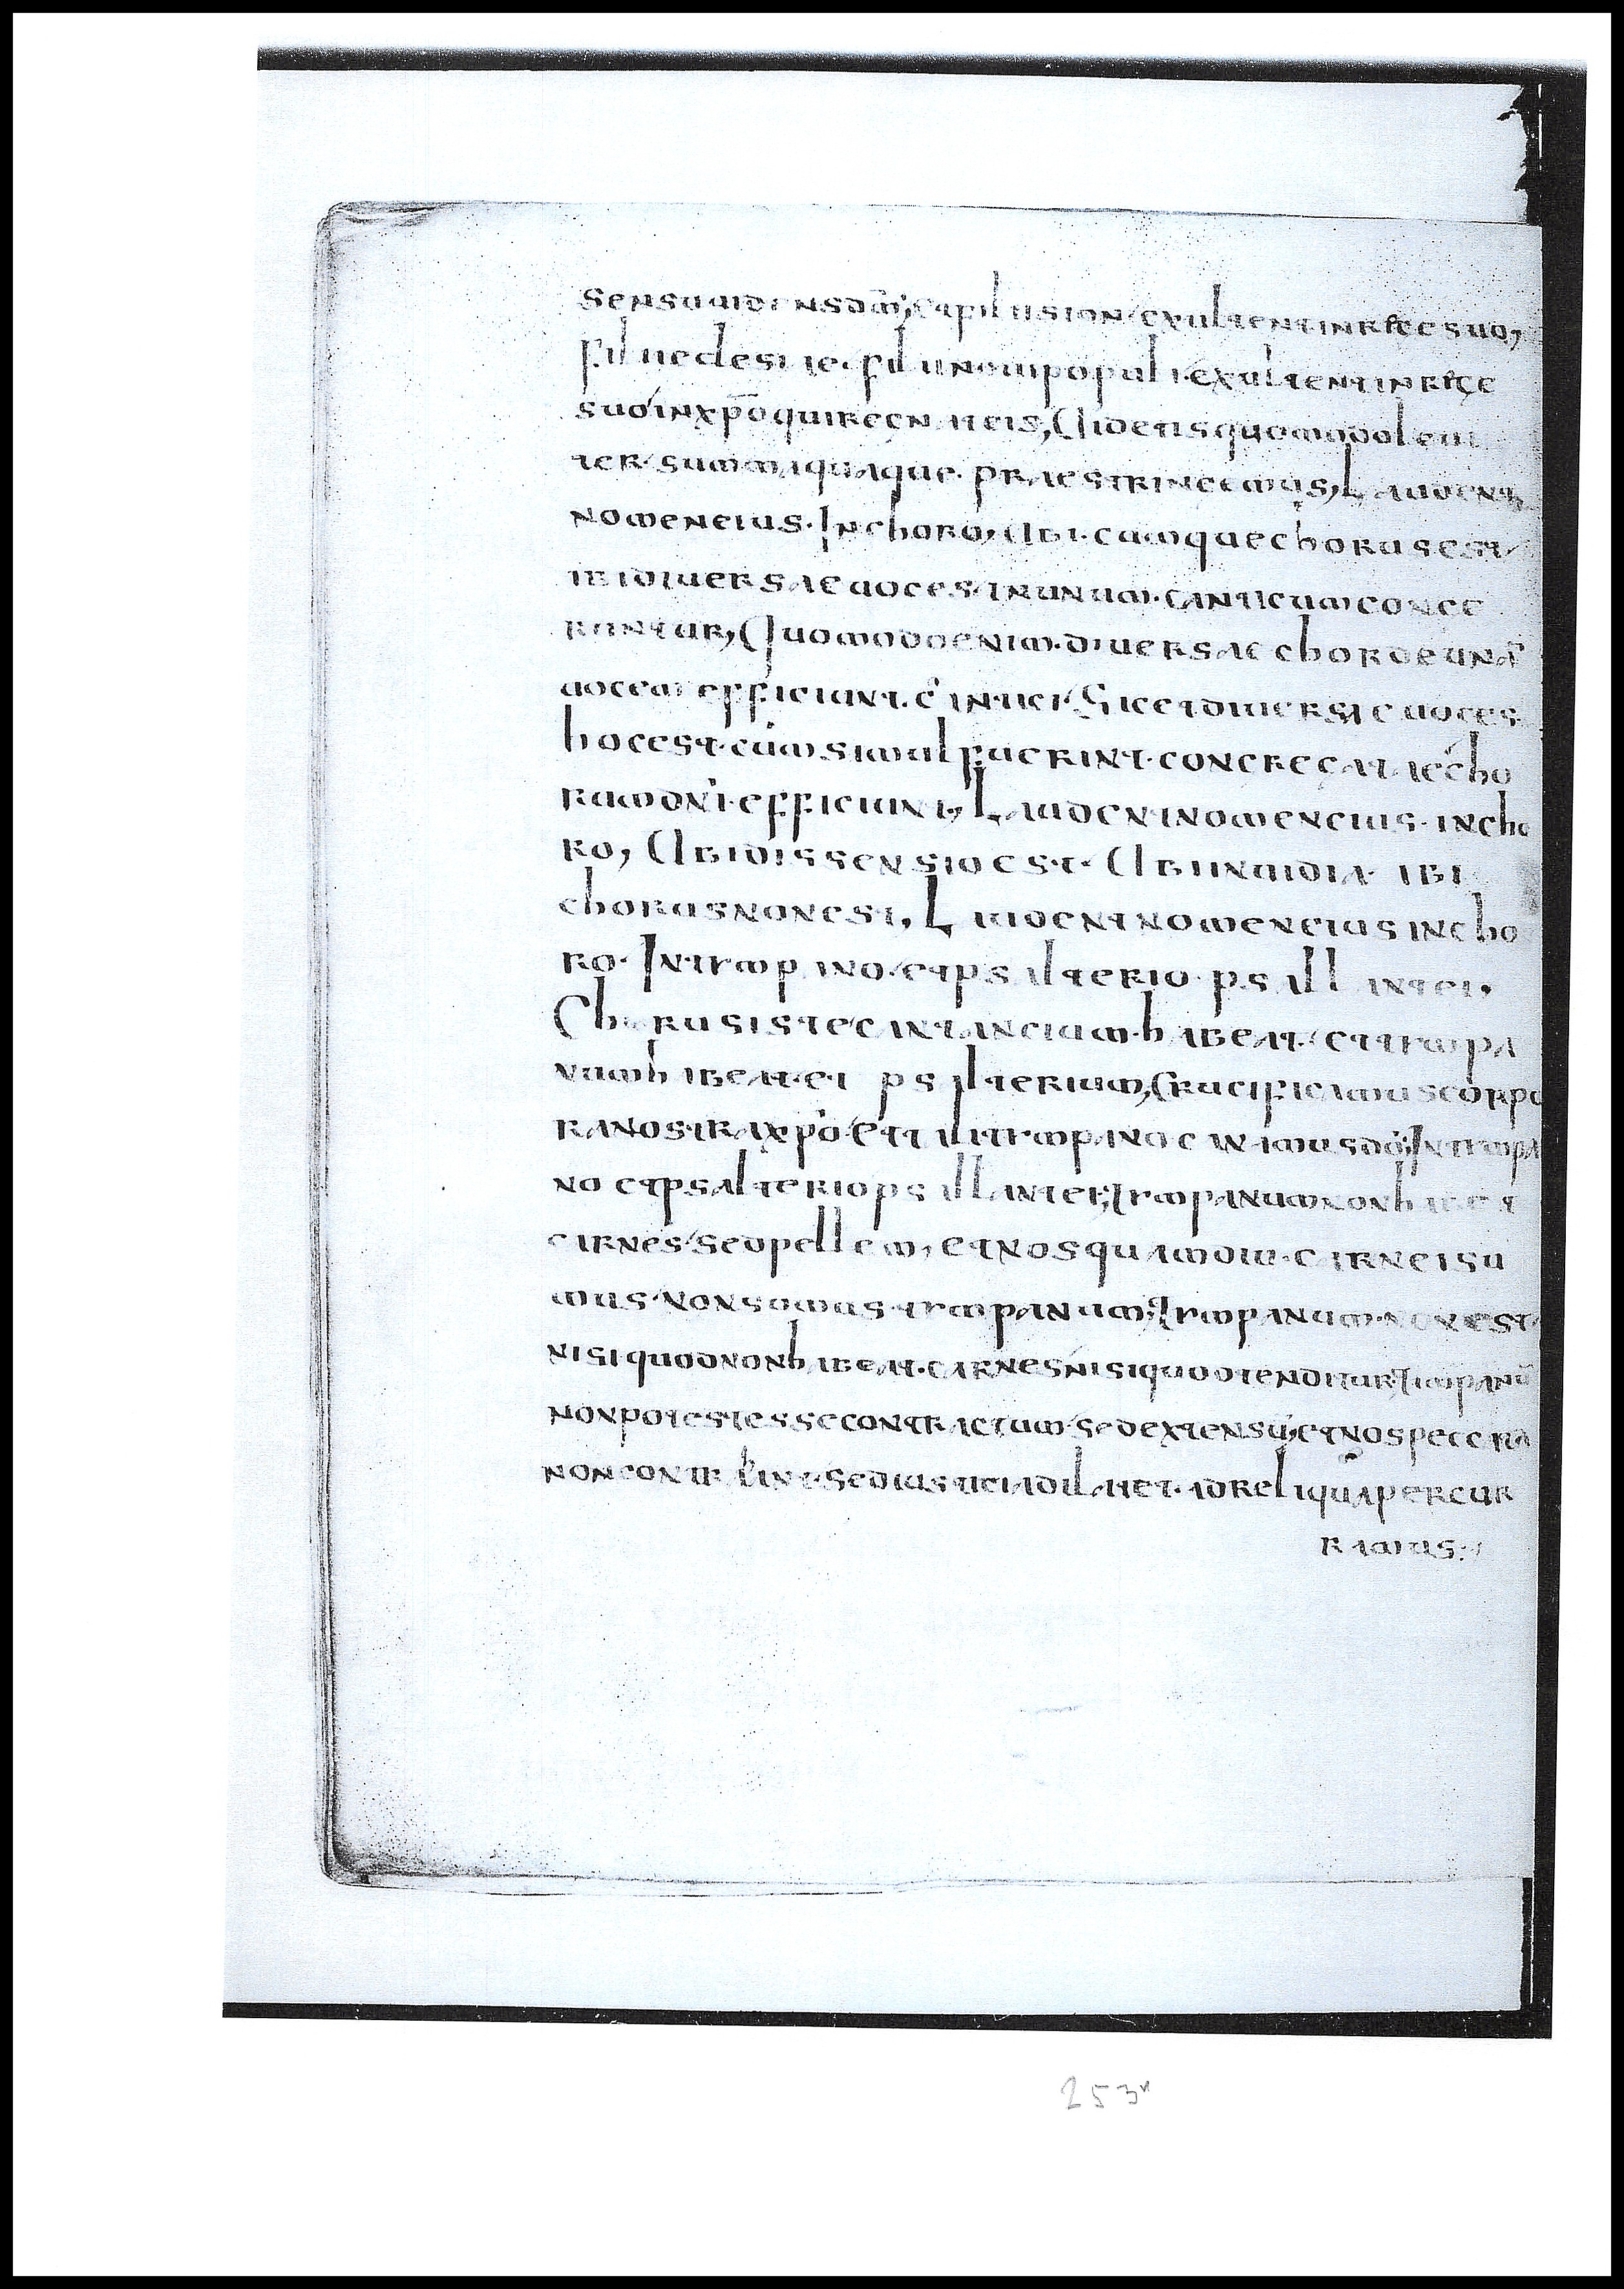 sensuuidensdm̄; etfiliision/exultentinregesuo,
filiieclesiae· filiinouipopuli·exultentinrege
suo/inxp̄oquiregnateis, Uidetisquomodoleui
ter·summaquaque·praestringemus, Laudent
nomeneius·Inchoro, Ubi·cumquechorusest/
ibidiuersaeuoces·inunum·canticumcongre
gantur, Quomodoenim·diuersaechordeunā
uocem efficiunt·cantici/Sicetdiuersaeuoces
hocest·cumsimulfuerint·congregatae/cho
rumdn̄i·efficiunt, Laudentnomeneius·incho
ro, Ubidissensioest· Ubiinuidia· ibi
chorusnonest, Laudentnomeneiusincho
ro·Intympano/etpsalterio·psallantei,
Chorusiste/cantantium·habeat·/ettympa
numhabeat·et psalterium, Crucificamuscorpo
ranostraxp̄o/ettaliтympanocanamusdō; Intympa
no etpsalteriopsallantei; Tympanumnonhabet
carnes/sedpellem, etnosquamdiu·carneisu
mus·nonsumus·tympanum; Tympanum·nonest·
nisiquodnonhabeat·carnes/nisiquodtenditur; Timpanū
nonpotestessecontractum/sedextensū; etnospeccata
noncontrahant·sediustitiadilatet·adreliquapercur
ramus:
253r